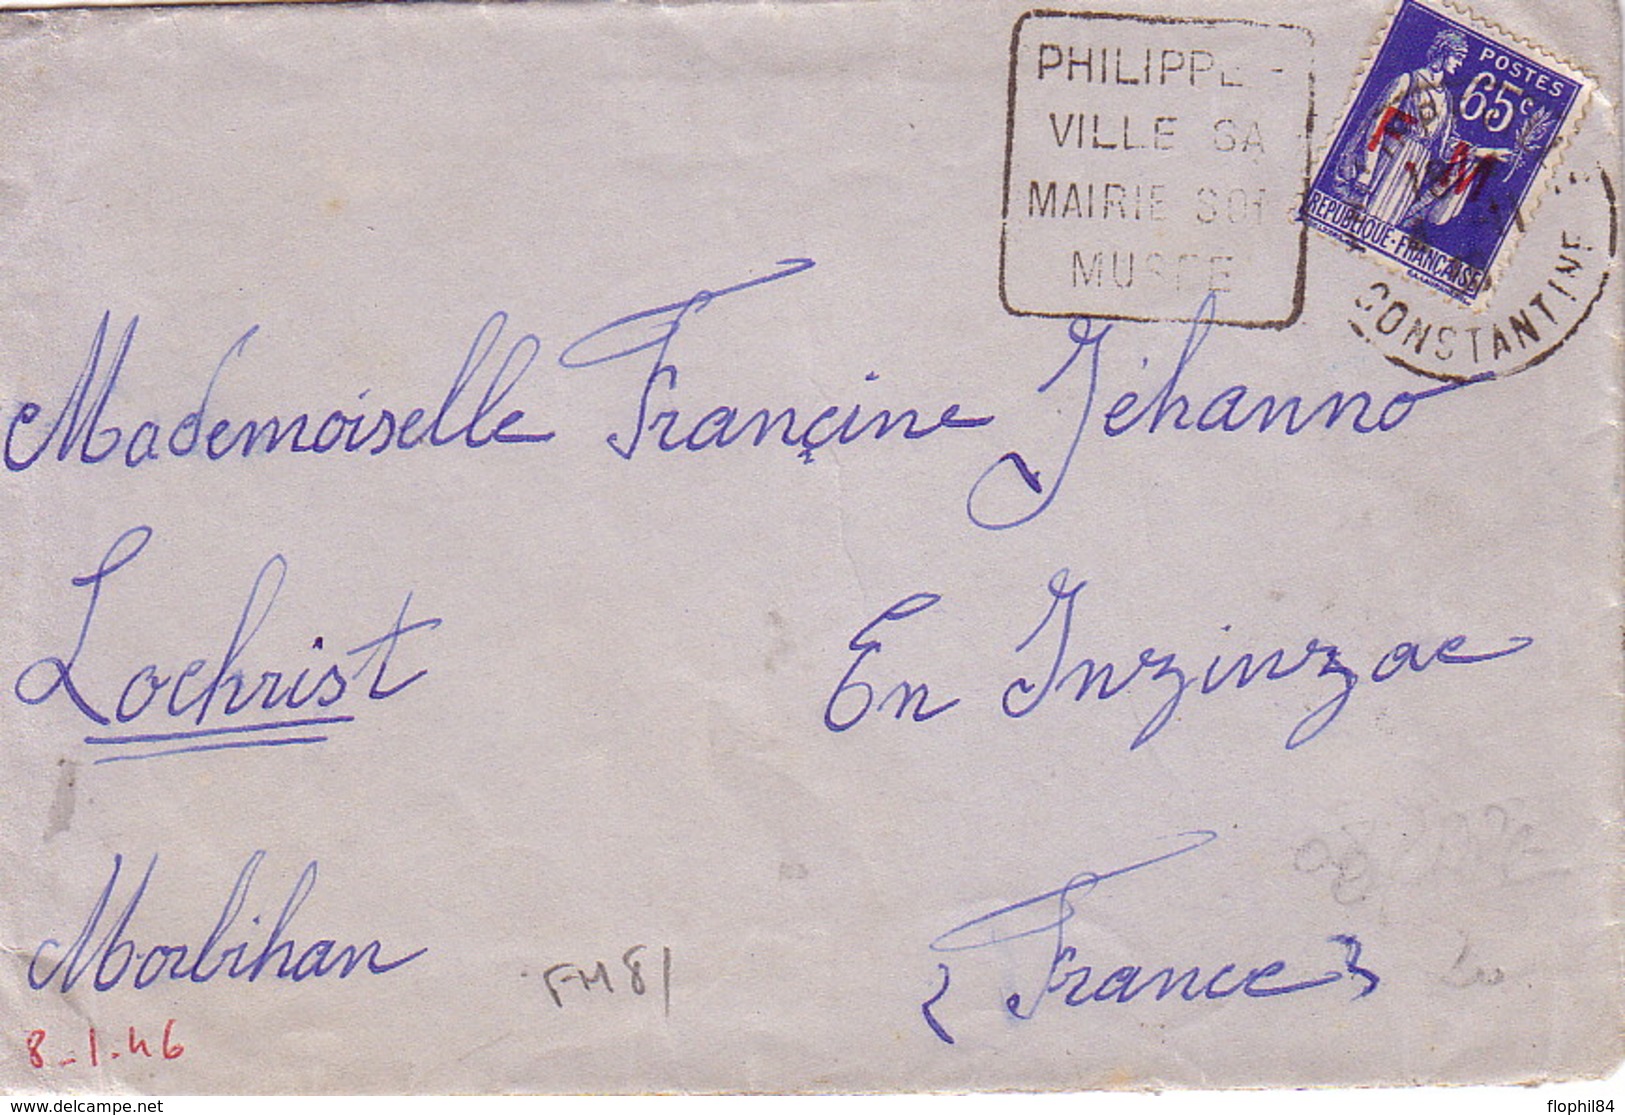 PHILIPPE-
VILLE SA
MAIRIE SON
MUSEE
POSTES
65c
F.M.
REPUBLIQUE-FRANÇAISE
CONSTANTINE
Mademoiselle Françine Jéhanno
Lochrist En Inzinzac
Morbihan (France)
FM 8
8-1-46
flophil84